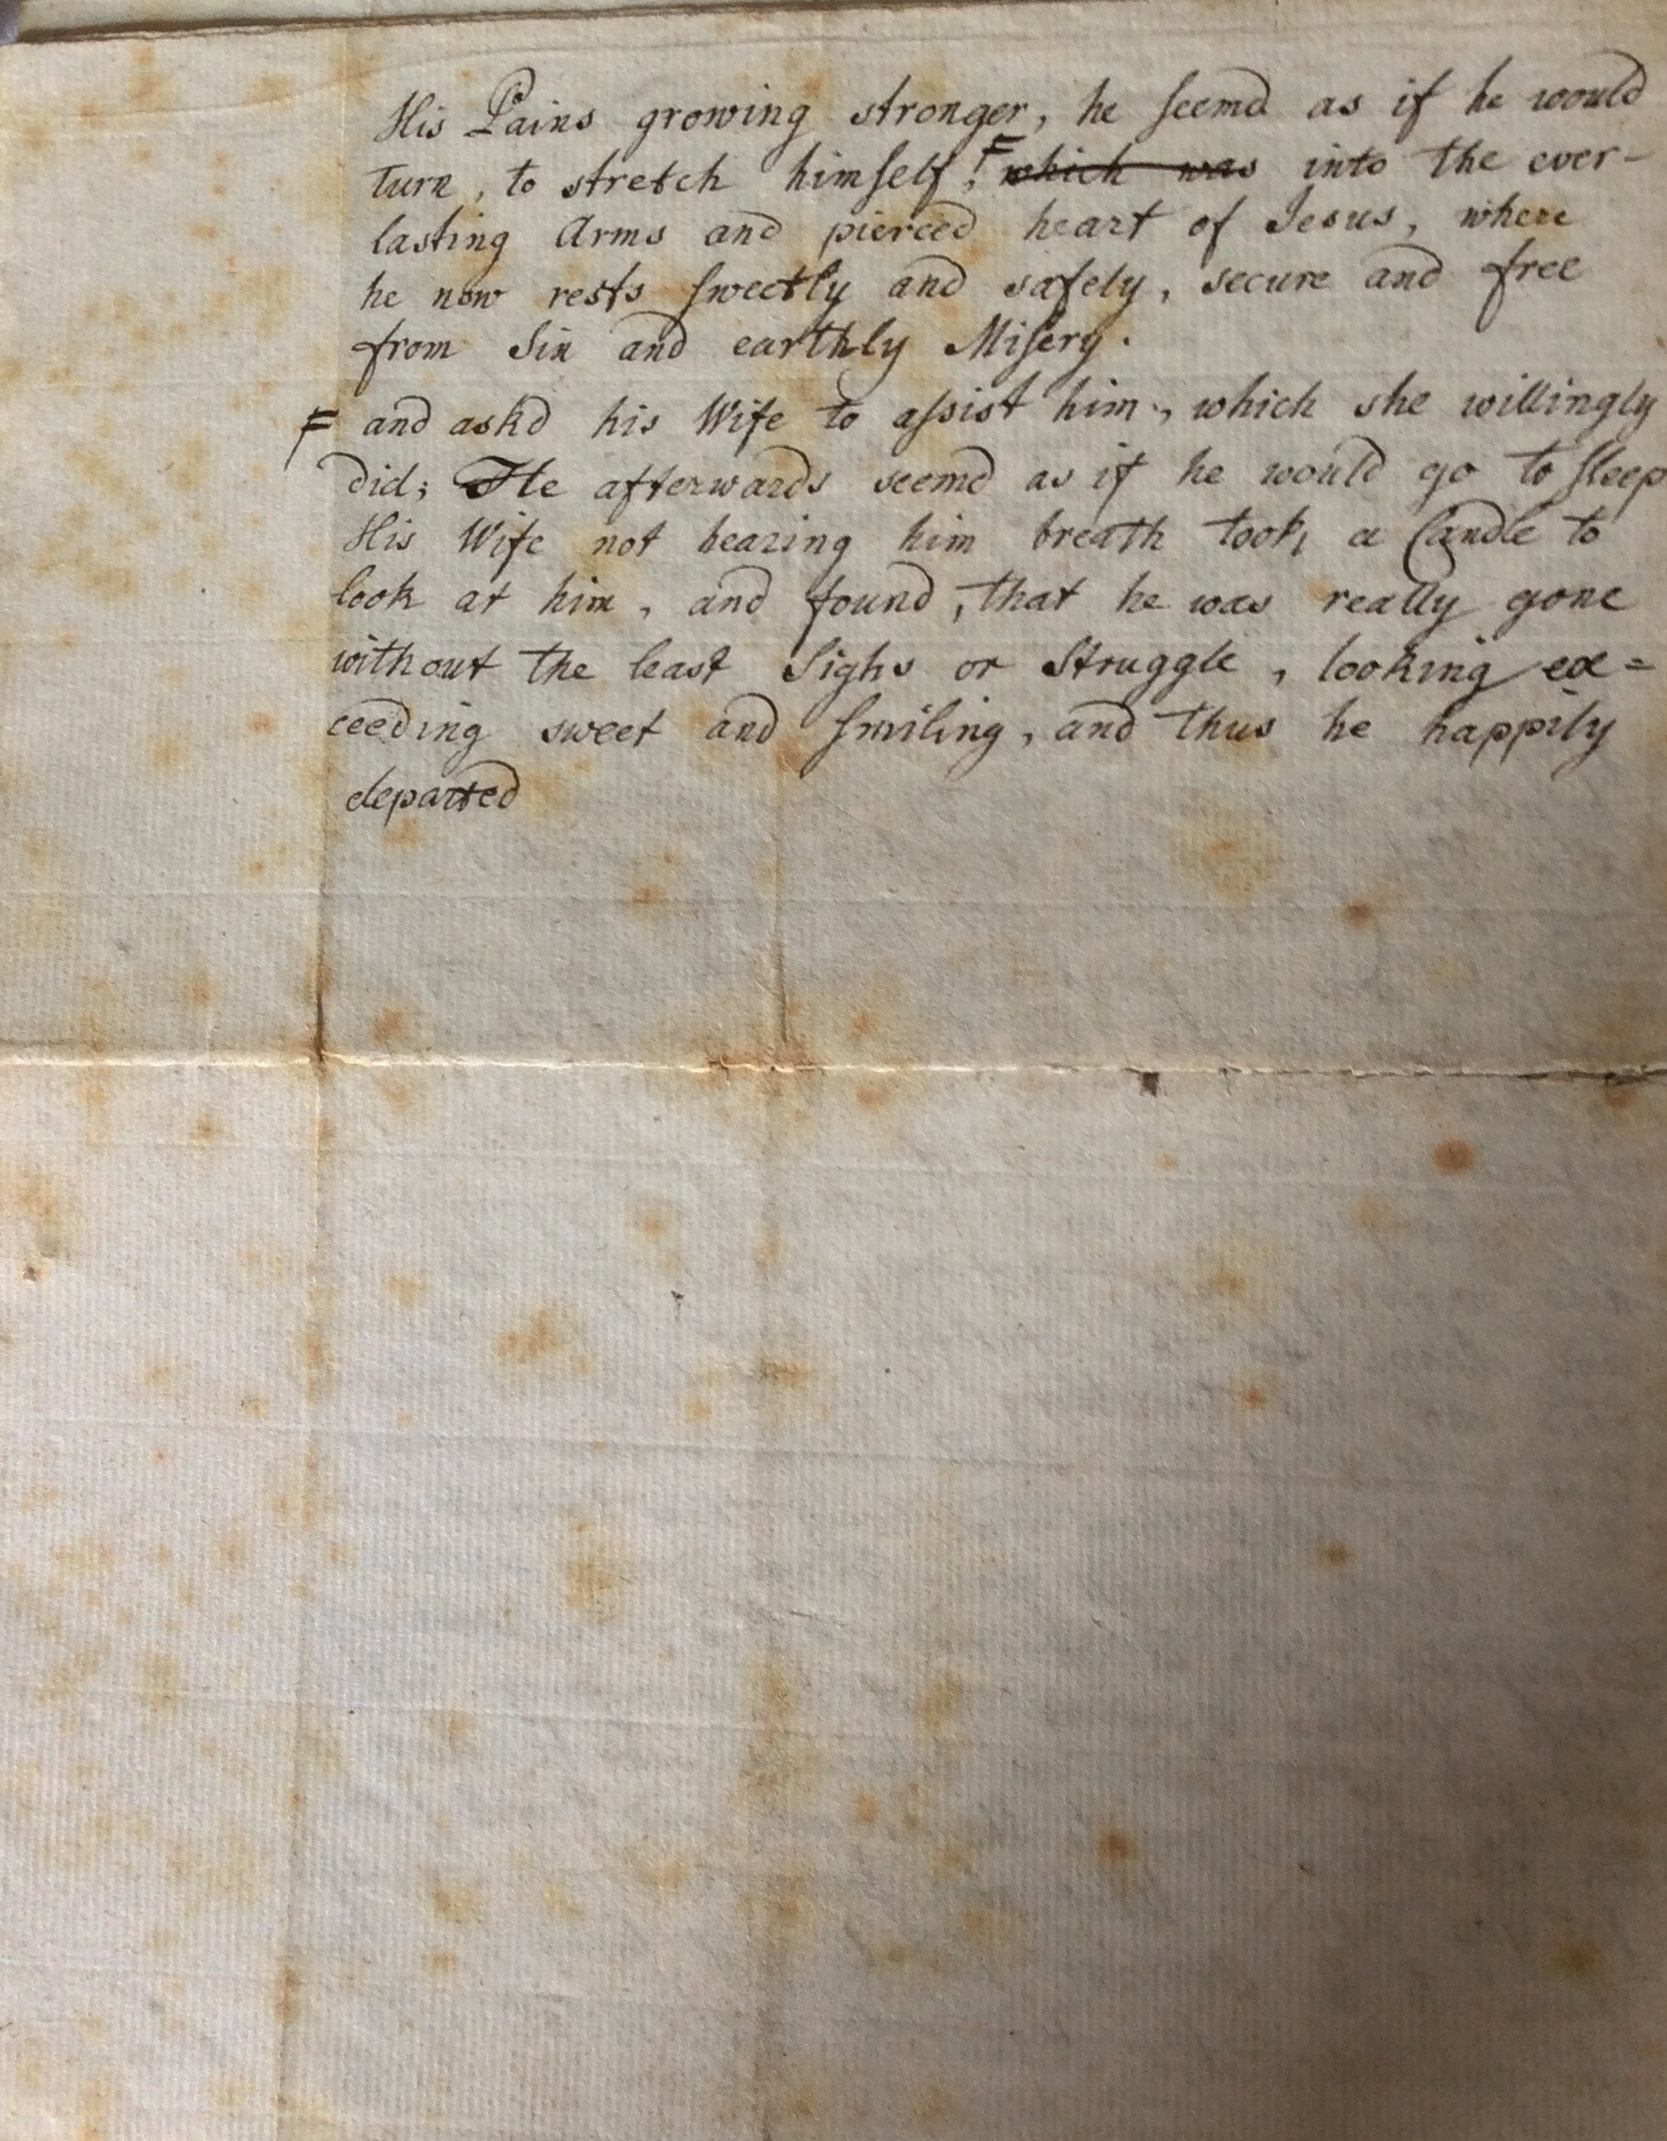 His Pains growing stronger, he seemd as if he would
turn, to stretch himself, F ~~which was~~ into the ever-
lasting Arms and pierced heart of Jesus, where
he now rests sweetly and safely, secure and free
from Sin and earthly Misery.
F and askd his Wife to assist him, which she willingly
did; He afterwards seemd as if he would go to sleep
His Wife not hearing him breath took a Candle to
look at him, and found, that he was really gone
without the least Sighs or Struggle, looking ex=
ceeding sweet and smiling, and thus he happily
departed